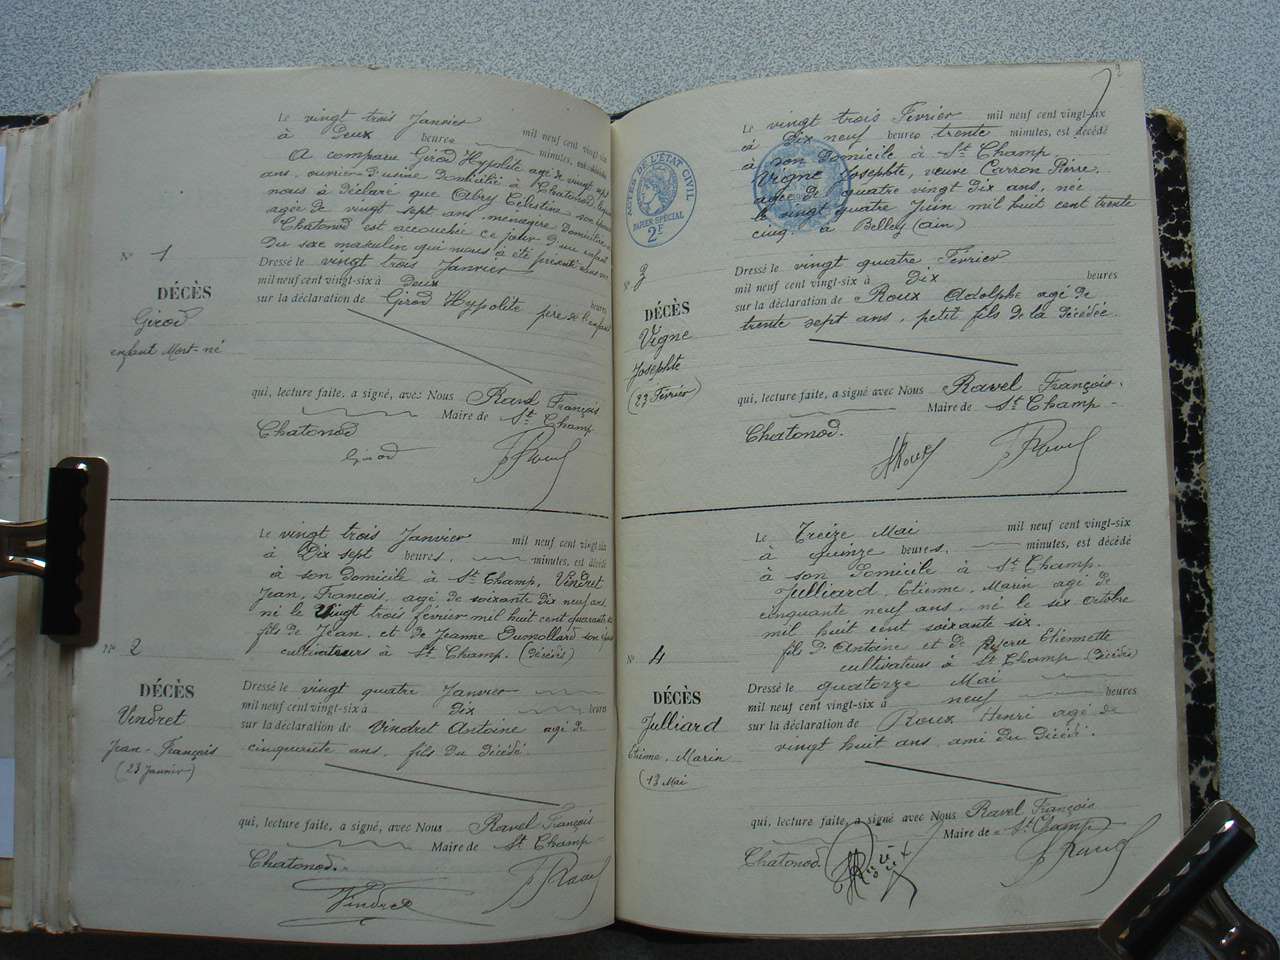 Le vingt trois Janvier mil neuf cent vingt-six
à Deux heures minutes, est
A comparu Girod Hypolite agé de vingt sept
ans, ouvrier d'usine Domicilié à Chatonod lequel
nous à déclaré que Abry Célestine son épouse
agée de vingt sept ans, ménagère Domiciliée à
Chatonod est accouchée ce jour d'un enfant
Du sexe masculin qui nous à été présenté
N° 1
DÉCÈS
Girod
enfant Mort-né
Dressé le vingt trois Janvier
mil neuf cent vingt-six à Deux heures
sur la déclaration de Girod Hypolite père de l'enfant
qui, lecture faite, a signé, avec Nous Ravel François
Maire de St Champ
Chatonod
Girod FRavel
Le vingt trois Janvier mil neuf cent vingt-six
à Dix sept heures, minutes, est décédé
à son Domicile à St Champ, Vindret
Jean, François, agé de soixante Dix neuf ans
né le Vingt trois février mil huit cent quarante
fils de Jean et de Jeanne son
cultivateurs à St Champ. (Décédés)
N° 2
DÉCÈS
Vindret
Jean-François
(23 Janvier)
Dressé le vingt quatre Janvier
mil neuf cent vingt-six à Dix heures
sur la déclaration de Vindret Antoine agé de
cinquante ans, fils du Décédé
qui, lecture faite, a signé, avec Nous Ravel François
Maire de St Champ
Chatonod.
Vindret FRavel
ACTES DE L'ÉTAT CIVIL
PAPIER SPÉCIAL
2F
Le vingt trois Fevrier mil neuf cent vingt-six
à Dix neuf heures trente minutes, est décédé
à son Domicile à St Champ
Vigne Josephte, veuve Carron Pierre,
agée de quatre vingt Dix ans, née
le vingt quatre Juin mil huit cent trente
cinq. à Belley (Ain)
N° 3
DÉCÈS
Vigne
Josephte
(23 Fevrier)
Dressé le vingt quatre Fevrier
mil neuf cent vingt-six à Dix heures
sur la déclaration de Roux Adolphe agé de
trente sept ans, petit fils de la Décédée.
qui, lecture faite, a signé avec Nous Ravel François.
Maire de St Champ-
Chatonod.
ARoux FRavel
Le Treize Mai mil neuf cent vingt-six
à quinze heures, minutes, est décédé
à son Domicile à St Champ.
Julliard, Etienne, Marin agé de
cinquante neuf ans, né le six Octobre
mil huit cent soixante six.
fils d'Antoine et de Etiennette
cultivateurs à St Champ (Décédés)
N° 4
DÉCÈS
Julliard
Etienne, Marin
(13 Mai
Dressé le quatorze Mai
mil neuf cent vingt-six à neuf heures
sur la déclaration de Roux Henri agé de
vingt huit ans, ami du Décédé.
qui, lecture faite, a signé avec Nous Ravel François
Maire de St Champ
Chatonod
FRavel